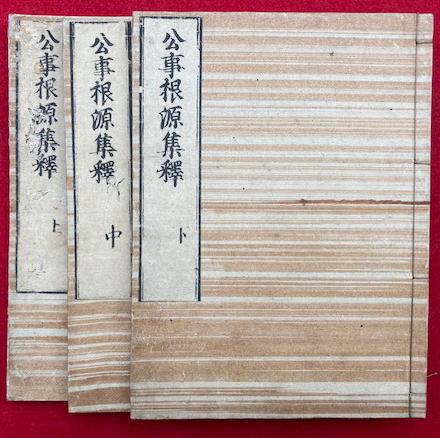 公事根源集釋 下
公事根源集釋 中
公事根源集釋 上